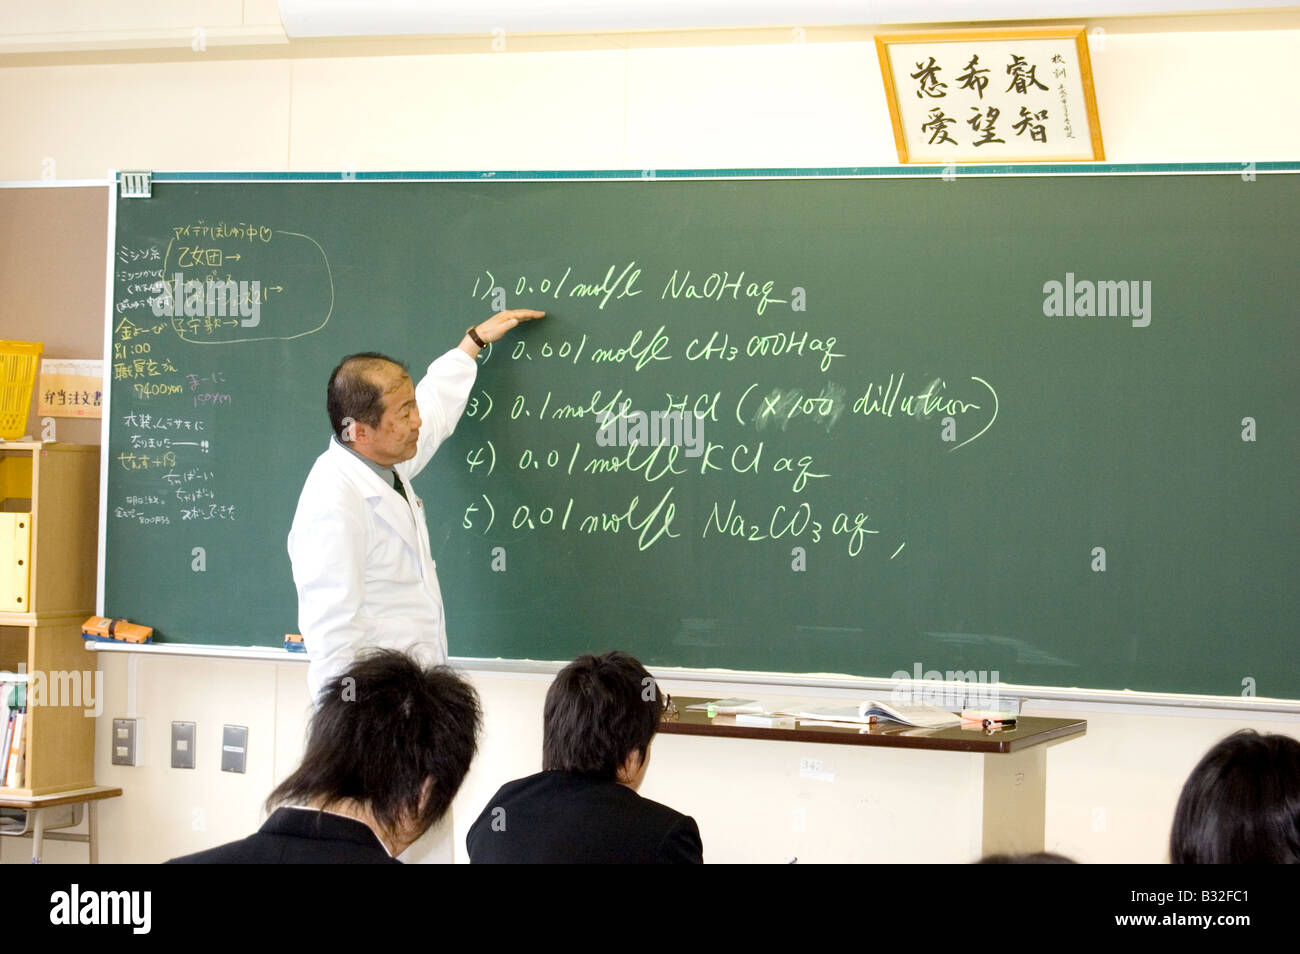 叡智
希望
慈愛
校訓
アイデアぼしゅう中
乙女団→
ミシン糸
1) 0.01 mol/l NaOH aq
2) 0.001 mol/l CH3COOH aq
3) 0.1 mol/l HCl (×100 dillution)
4) 0.01 mol/l KCl aq
5) 0.01 mol/l Na2CO3 aq,
金よーび
職員玄さん
7400yen
まーに
150yen
衣装、ムラサキに
なりました――!!
ちゃばーい
弁当注文書
alamy
Image ID: B32FC1
www.alamy.com